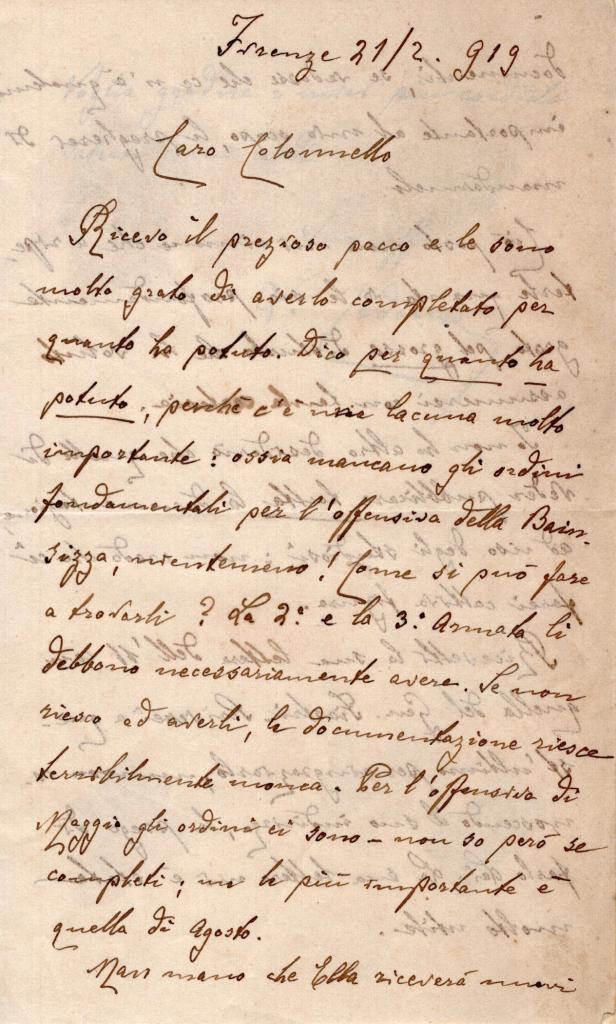 Firenze 21/2. 919
Caro Colonnello
Ricevo il prezioso pacco e le sono
molto grato di averlo completato per
quanto ha potuto. Dico per quanto ha
potuto, perchè c'è una lacuna molto
importante: ossia mancano gli ordini
fondamentali per l'offensiva della Bain-
sizza, nientemeno! Come si può fare
a trovarli? La 2ª e la 3ª Armata li
debbono necessariamente avere. Se non
riesco ad averli, la documentazione riesce
terribilmente monca. Per l'offensiva di
Maggio gli ordini ci sono - non so però se
completi; ma la più importante è
quella di Agosto.
Man mano che Ella riceverà nuovi